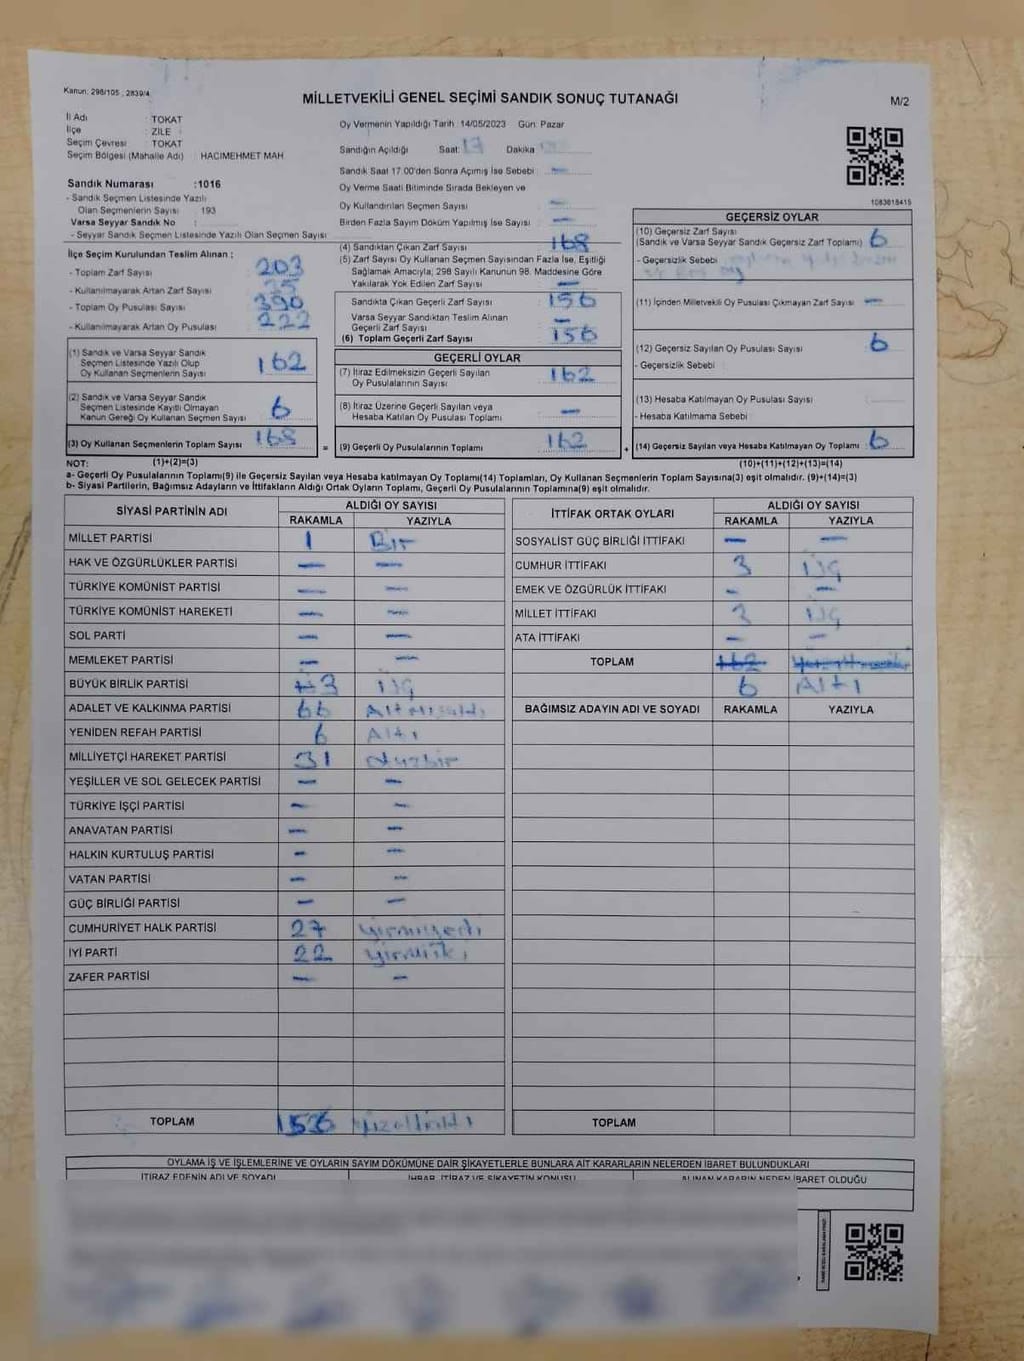 Kanun: 298/105 , 2839/4
MİLLETVEKİLİ GENEL SEÇİMİ SANDIK SONUÇ TUTANAĞI
M/2
İl Adı : TOKAT
İlçe : ZİLE
Seçim Çevresi : TOKAT
Seçim Bölgesi (Mahalle Adı) : HACIMEHMET MAH
Sandık Numarası :1016
- Sandık Seçmen Listesinde Yazılı
Olan Seçmenlerin Sayısı : 193
Varsa Seyyar Sandık No :
- Seyyar Sandık Seçmen Listesinde Yazılı Olan Seçmen Sayısı :
Oy Vermenin Yapıldığı Tarih :14/05/2023 Gün: Pazar
Sandığın Açıldığı Saat: 17 Dakika
Sandık Saat 17.00'den Sonra Açımış İse Sebebi : —
Oy Verme Saati Bitiminde Sırada Bekleyen ve
Oy Kullandırılan Seçmen Sayısı : —
Birden Fazla Sayım Döküm Yapılmış İse Sayısı : —
1083618415
İlçe Seçim Kurulundan Teslim Alınan ;
- Toplam Zarf Sayısı : 203
- Kullanılmayarak Artan Zarf Sayısı
- Toplam Oy Pusulası Sayısı : 390
- Kullanılmayarak Artan Oy Pusulası : 222
(1) Sandık ve Varsa Seyyar Sandık
Seçmen Listesinde Yazılı Olup
Oy Kullanan Seçmenlerin Sayısı : 162
(2) Sandık ve Varsa Seyyar Sandık
Seçmen Listesinde Kayıtlı Olmayan
Kanun Gereği Oy Kullanan Seçmen Sayısı : 6
(3) Oy Kullanan Seçmenlerin Toplam Sayısı : 168
(1)+(2)=(3)
(4) Sandıktan Çıkan Zarf Sayısı : 168
(5) Zarf Sayısı Oy Kullanan Seçmen Sayısından Fazla İse, Eşitliği
Sağlamak Amacıyla, 298 Sayılı Kanunun 98. Maddesine Göre
Yakılarak Yok Edilen Zarf Sayısı : —
Sandıkta Çıkan Geçerli Zarf Sayısı : 156
Varsa Seyyar Sandıktan Teslim Alınan
Geçerli Zarf Sayısı : —
(6) Toplam Geçerli Zarf Sayısı : 156
GEÇERLİ OYLAR
(7) İtiraz Edilmeksizin Geçerli Sayılan
Oy Pusulalarının Sayısı : 162
(8) İtiraz Üzerine Geçerli Sayılan veya
Hesaba Katılan Oy Pusulası Toplamı : —
= (9) Geçerli Oy Pusulalarının Toplamı : 162 +
GEÇERSİZ OYLAR
(10) Geçersiz Zarf Sayısı
(Sandık ve Varsa Seyyar Sandık Geçersiz Zarf Toplamı) : 6
- Geçersizlik Sebebi :
(11) İçinden Milletvekili Oy Pusulası Çıkmayan Zarf Sayısı : —
(12) Geçersiz Sayılan Oy Pusulası Sayısı : 6
- Geçersizlik Sebebi :
(13) Hesaba Katılmayan Oy Pusulası Sayısı :
- Hesaba Katılmama Sebebi :
(14) Geçersiz Sayılan veya Hesaba Katılmayan Oy Toplamı : 6
(10)+(11)+(12)+(13)=(14)
NOT:
a- Geçerli Oy Pusulalarının Toplamı(9) ile Geçersiz Sayılan veya Hesaba katılmayan Oy Toplamı(14) Toplamları, Oy Kullanan Seçmenlerin Toplam Sayısına(3) eşit olmalıdır. (9)+(14)=(3)
b- Siyasi Partilerin, Bağımsız Adayların ve İttifakların Aldığı Oyların Toplamı, Geçerli Oy Pusulalarının Toplamına(9) eşit olmalıdır.
SİYASİ PARTİNİN ADI
ALDIĞI OY SAYISI
RAKAMLA YAZIYLA
MİLLET PARTİSİ 1 Bir
HAK VE ÖZGÜRLÜKLER PARTİSİ — —
TÜRKİYE KOMÜNİST PARTİSİ — —
TÜRKİYE KOMÜNİST HAREKETİ — —
SOL PARTİ — —
MEMLEKET PARTİSİ — —
BÜYÜK BİRLİK PARTİSİ 3 ÜÇ
ADALET VE KALKINMA PARTİSİ 66 Altmışaltı
YENİDEN REFAH PARTİSİ 6 Altı
MİLLİYETÇİ HAREKET PARTİSİ 31 otuzbir
YEŞİLLER VE SOL GELECEK PARTİSİ — —
TÜRKİYE İŞÇİ PARTİSİ — —
ANAVATAN PARTİSİ — —
HALKIN KURTULUŞ PARTİSİ — —
VATAN PARTİSİ — —
GÜÇ BİRLİĞİ PARTİSİ — —
CUMHURİYET HALK PARTİSİ 27 yirmiyedi
İYİ PARTİ 22 yirmiiki
ZAFER PARTİSİ — —
TOPLAM 156 yüzellialtı
İTTİFAK ORTAK OYLARI
ALDIĞI OY SAYISI
RAKAMLA YAZIYLA
SOSYALİST GÜÇ BİRLİĞİ İTTİFAKI — —
CUMHUR İTTİFAKI 3 ÜÇ
EMEK VE ÖZGÜRLÜK İTTİFAKI — —
MİLLET İTTİFAKI 3 ÜÇ
ATA İTTİFAKI — —
TOPLAM 162
6 Altı
BAĞIMSIZ ADAYIN ADI VE SOYADI RAKAMLA YAZIYLA
TOPLAM
OYLAMA İŞ VE İŞLEMLERİNE VE OYLARIN SAYIM DÖKÜMÜNE DAİR ŞİKAYETLERLE BUNLARA AİT KARARLARIN NELERDEN İBARET BULUNDUKLARI
İTİRAZ EDENİN ADI VE SOYADI
İHBAR, İTİRAZ VE ŞİKAYETİN KONUSU
ALINAN KARARIN NEDEN İBARET OLDUĞU